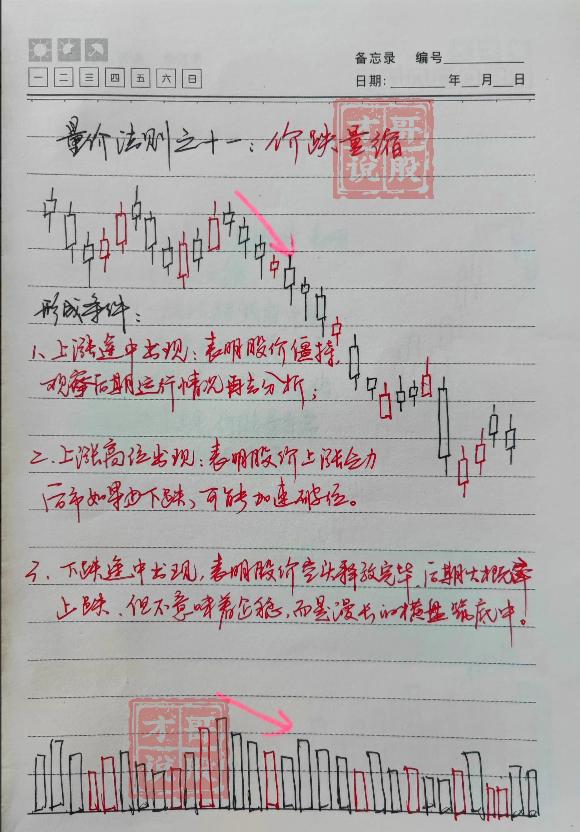 备忘录 编号
一 二 三 四 五 六 日
日期: 年 月 日
量价法则之十一：价跌量缩
才哥说股
形成条件：
1、上涨途中出现：表明股价僵持，
观察后期运行情况再去分析；
二、上涨高位出现：表明股价上涨乏力
后市如果出下跌，可能加速破位。
三、下跌途中出现，表明股价空头释放完毕，后期大概率
止跌、但不意味着企稳，而是漫长的横盘筑底中。
才哥说股